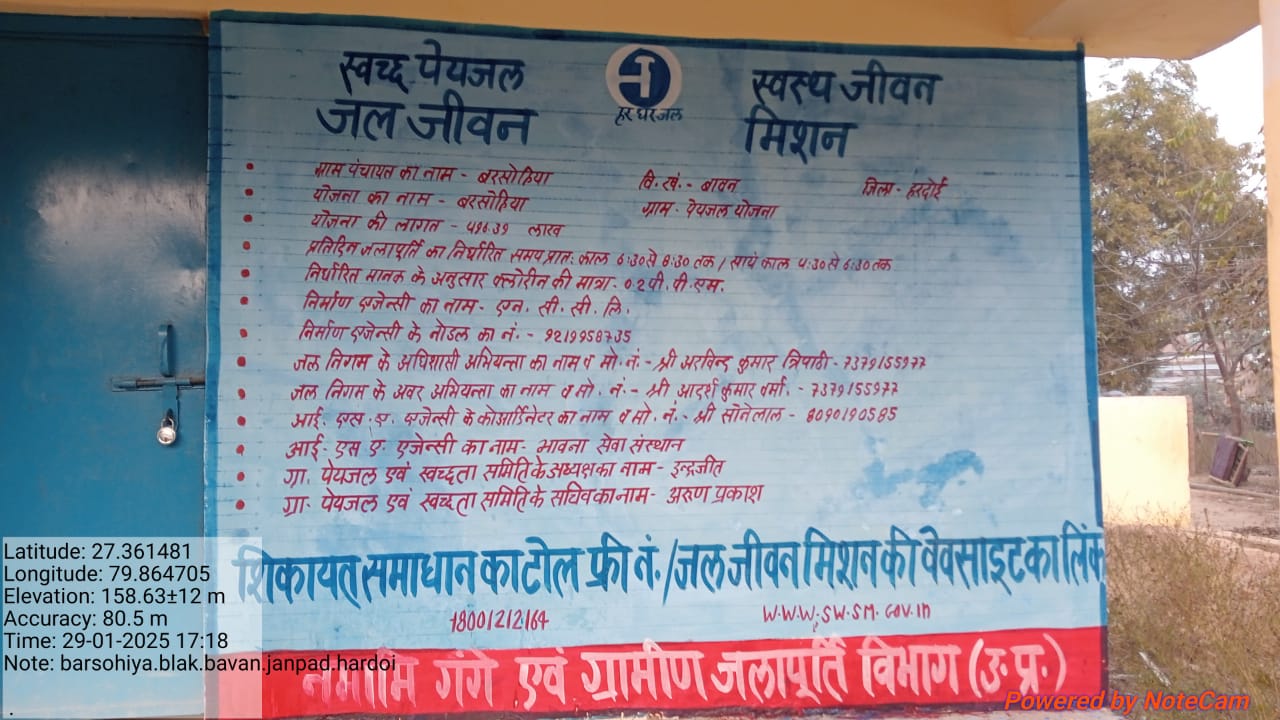 स्वच्छ पेयजल स्वस्थ जीवन
हर घर जल
जल जीवन मिशन
ग्राम पंचायत का नाम - बरसोहिया वि. खं. - बावन जिला - हरदोई
योजना का नाम - बरसोहिया ग्राम - पेयजल योजना
योजना की लागत - लाख
प्रतिदिन जलापूर्ति का निर्धारित समय प्रातः काल 6:30 से 8:30 तक / सायं काल 4:30 से 6:30 तक
निर्धारित मानक के अनुसार क्लोरीन की मात्रा - 0.2 पी. पी. एम.
निर्माण एजेन्सी का नाम - एन. सी. सी. लि.
निर्माण एजेन्सी के नोडल का नं. - 9219958735
जल निगम के अधिशासी अभियन्ता का नाम व मो. नं. - श्री अरविन्द कुमार त्रिपाठी - 7379155977
जल निगम के अवर अभियन्ता का नाम व मो. नं. - श्री आदर्श कुमार वर्मा. - 7379155977
आई. एस. ए. एजेन्सी के कोआर्डिनेटर का नाम व मो. नं. - श्री सोनेलाल - 8090190585
आई- एस ए. एजेन्सी का नाम - भावना सेवा संस्थान
ग्रा. पेयजल एवं स्वच्छता समिति के अध्यक्ष का नाम - इन्द्रजीत
ग्रा. पेयजल एवं स्वच्छता समिति के सचिव का नाम - अरुण प्रकाश
शिकायत समाधान का टोल फ्री नं. / जल जीवन मिशन की वेवसाइट का लिंक
18001212164 W.W.W.SW.SM.GOV.IN
नमामि गंगे एवं ग्रामीण जलापूर्ति विभाग (उ.प्र.)
Latitude: 27.361481
Longitude: 79.864705
Elevation: 158.63±12 m
Accuracy: 80.5 m
Time: 29-01-2025 17:18
Note: barsohiya.blak.bavan.janpad.hardoi
.
Powered by NoteCam